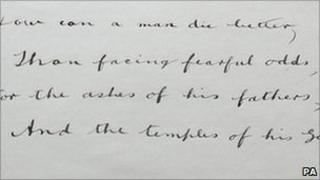 How can a man die better,
Than facing fearful odds,
For the ashes of his fathers,
And the temples of his
PA